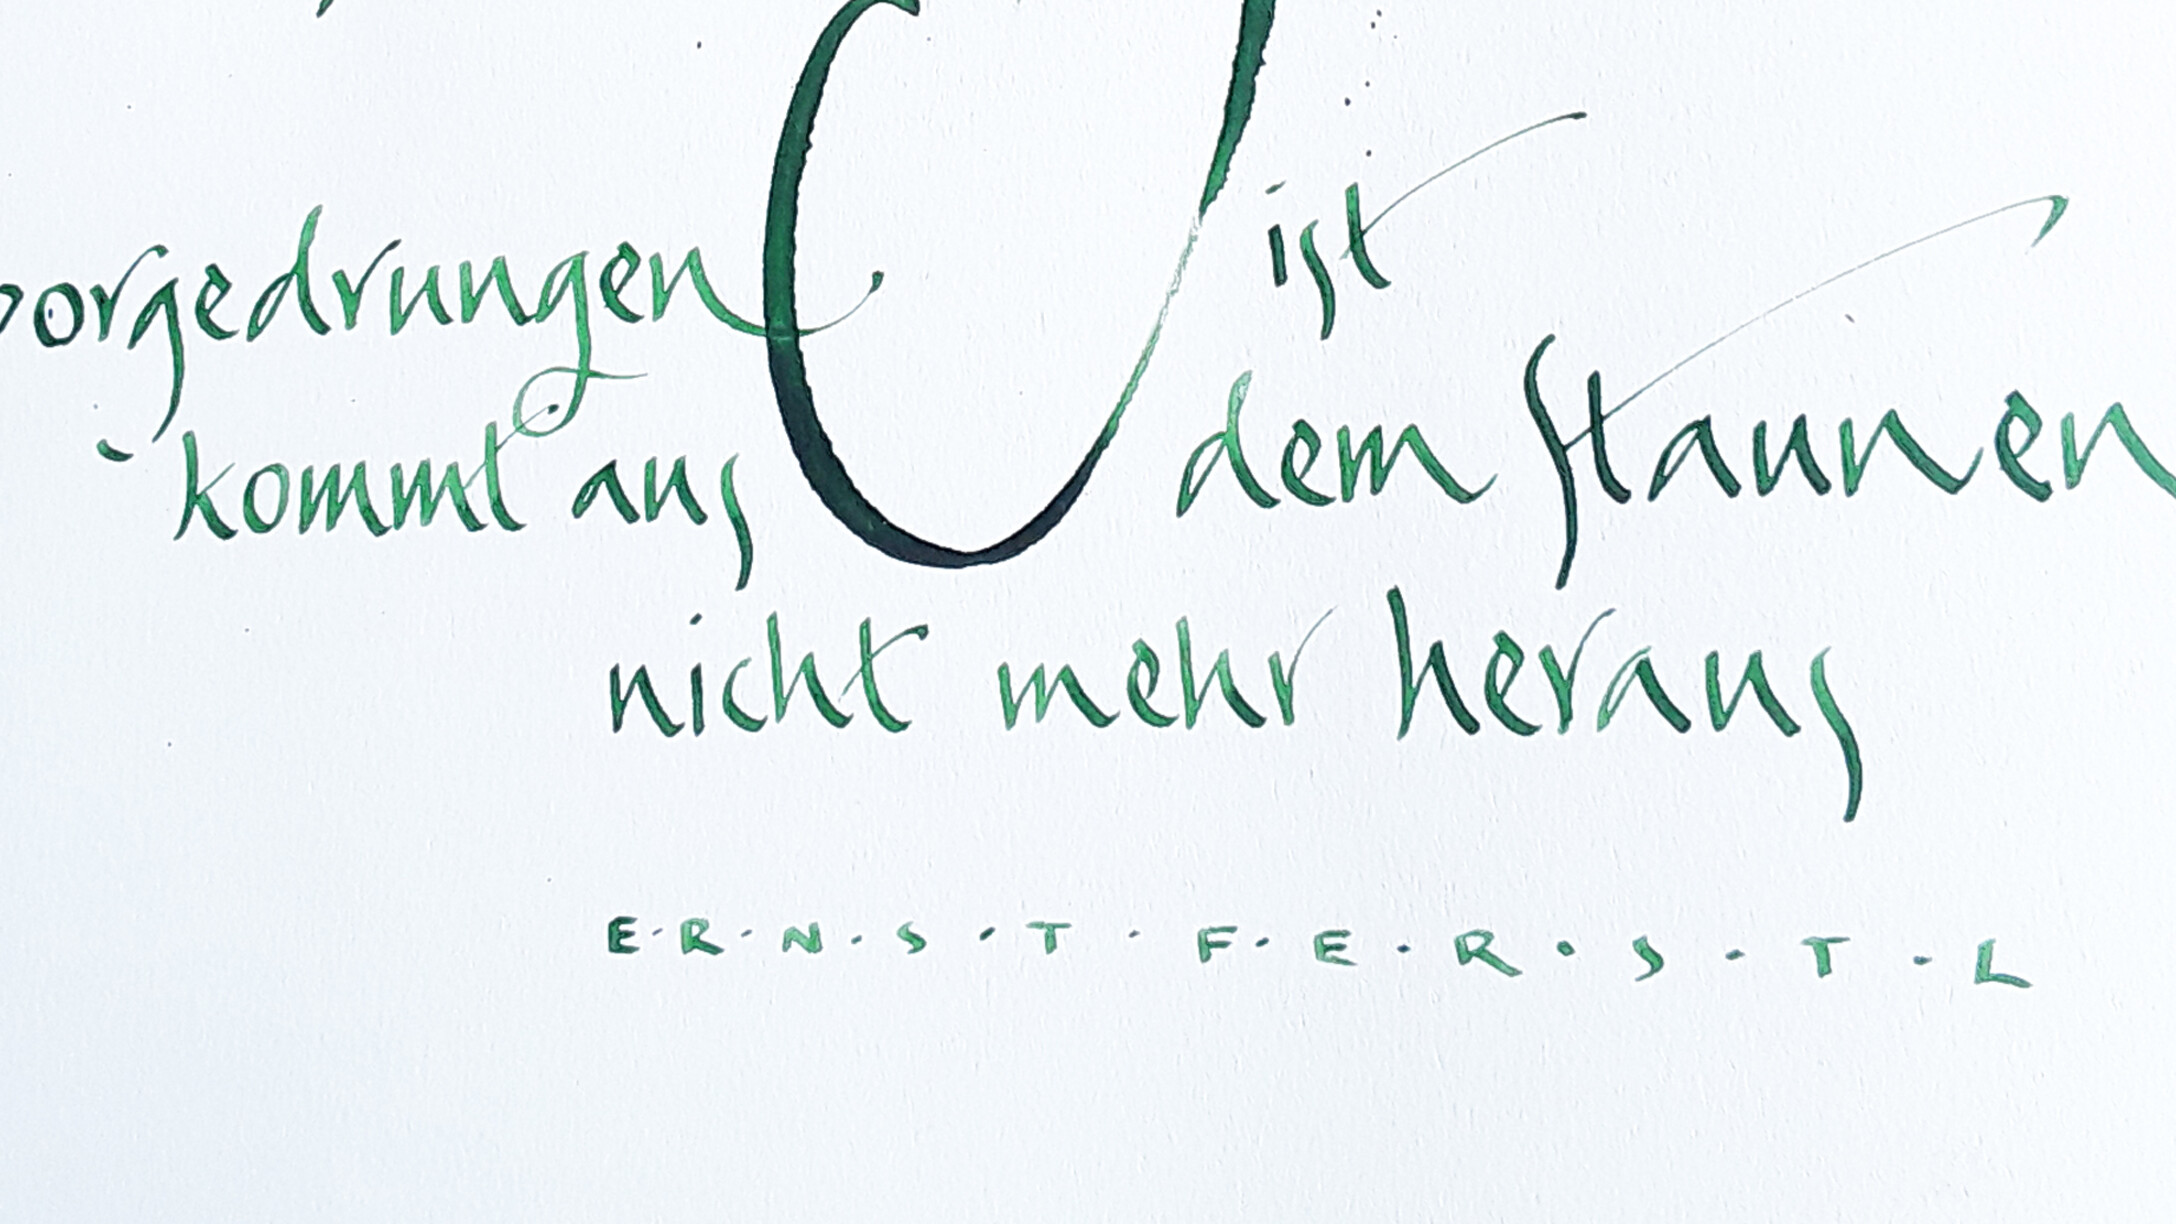 vorgedrungen ist
kommt aus dem Staunen
nicht mehr heraus
E·R·N·S·T· F·E·R·S·T·L